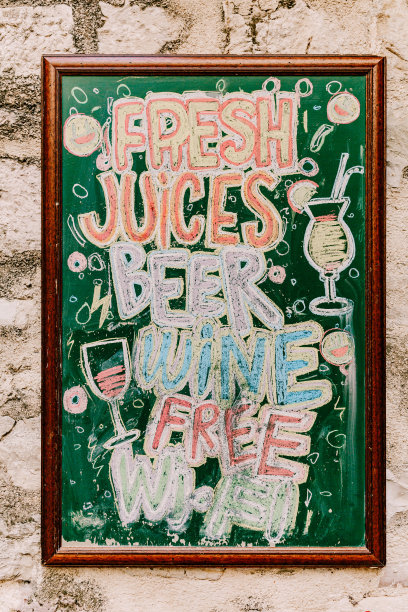 FRESH
JUiCES
BEER
WiNE
FREE
Wi-Fi